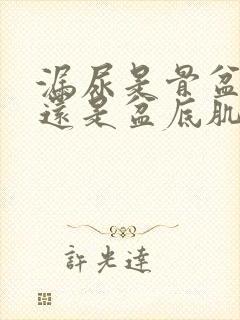 漏尿是骨盆
還是盆底肌
許光達